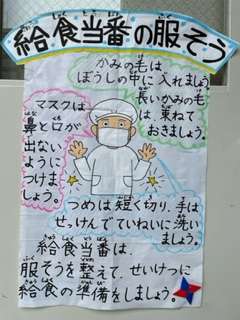 給食当番の服そう
かみの毛は
ぼうしの中に入れましょう
長いかみの毛
は、束ねて
おきましょう。
マスクは
鼻と口が
出ない
ように
つけま
しょう。
つめは短く切り、手は
せっけんでていねいに洗い
ましょう。
給食当番は、
服そうを整えて、せいけつに
給食の準備をしましょう。